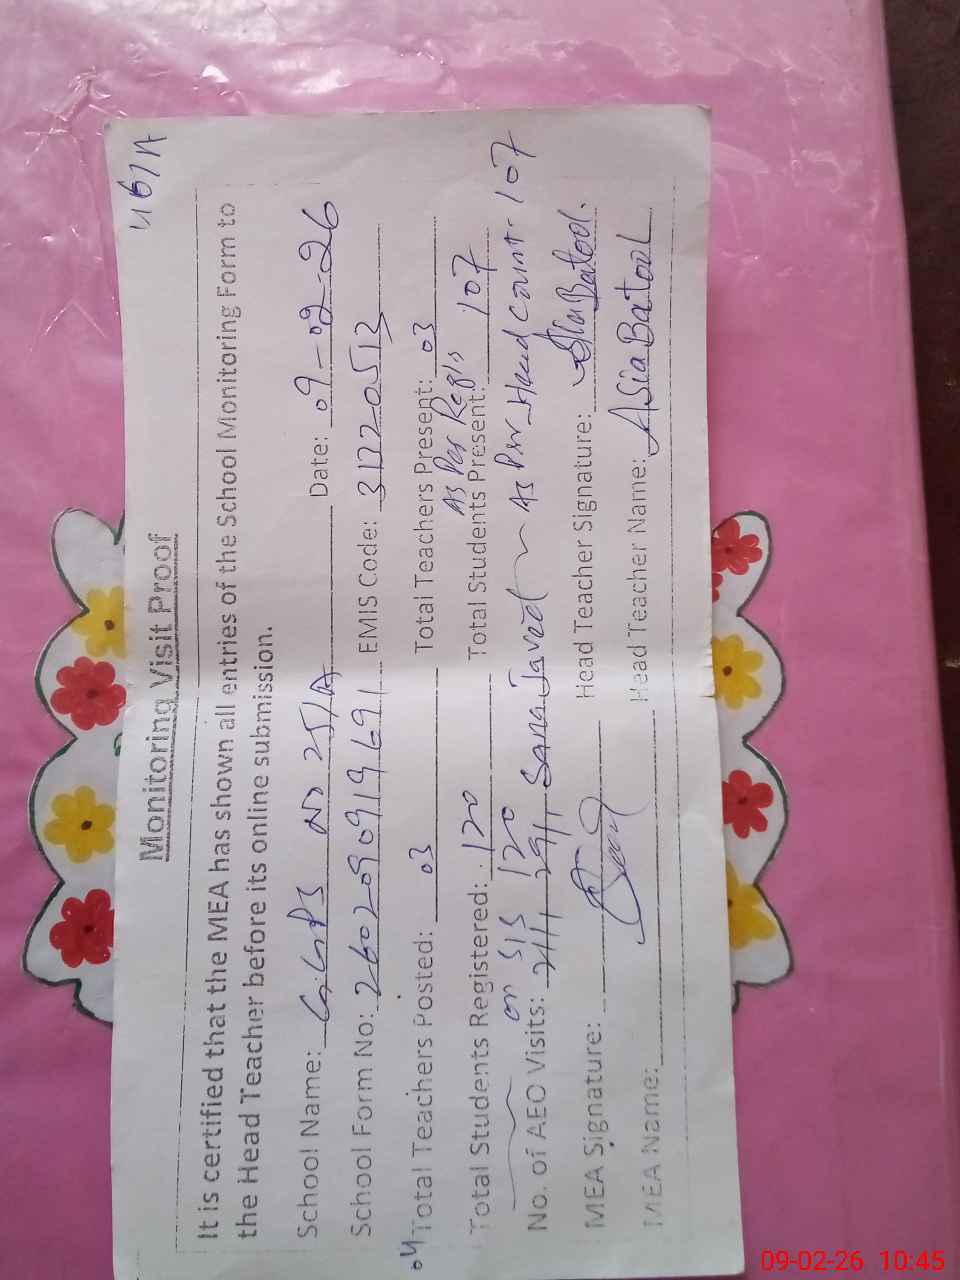 4617A
Monitoring Visit Proof
It is certified that the MEA has shown all entries of the School Monitoring Form to
the Head Teacher before its online submission.
School Name: G.G.P.S NO 25/A Date: 09-02-26
School Form No: 2602090919691 EMIS Code: 31220513
04 Total Teachers Posted: 03 Total Teachers Present: 03
As Per Regis
Total Students Registered: 120 Total Students Present: 107
on SIS 120
No. of AEO Visits: Sana Javed As Per Head Count. 107
MEA Signature: Head Teacher Signature: Asia Batool.
MEA Name: Head Teacher Name: Asia Batool
09-02-26 10:45